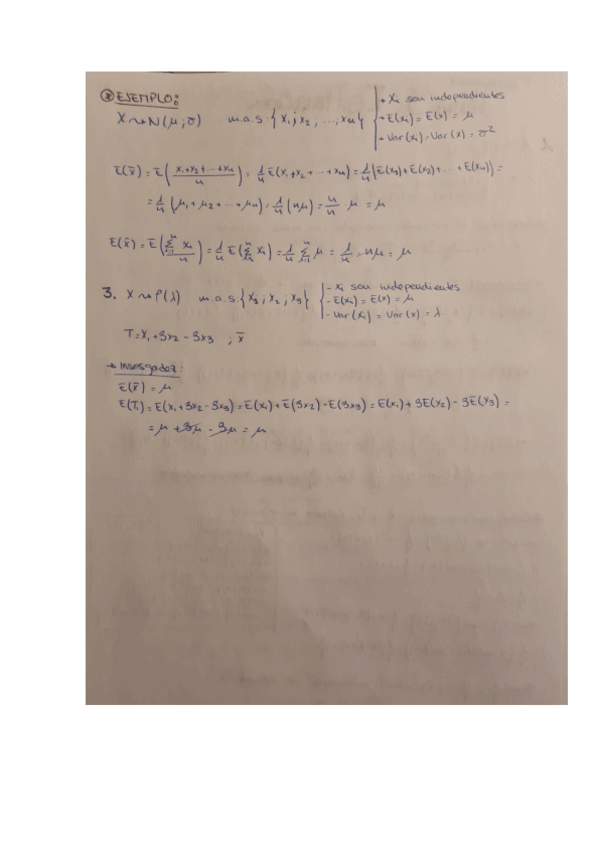 ⊛ EJEMPLO:
X ~> N(μ; σ) m.a.s {x₁; x₂; ...; xₙ}
• Xᵢ son independientes
• E(xᵢ) = E(x) = μ
• Var(xᵢ) = Var(x) = σ²
E(x̄) = E((x₁+x₂+...+xₙ)/n) = 1/n E(x₁+x₂+...+xₙ) = 1/n (E(x₁)+E(x₂)+...+E(xₙ)) =
= 1/n (μ₁+μ₂+...+μₙ) = 1/n (nμ) = n/n μ = μ
E(x̄) = E(∑ᵢ₌₁ⁿ xᵢ / n) = 1/n E(∑ᵢ₌₁ⁿ xᵢ) = 1/n ∑ᵢ₌₁ⁿ μ = 1/n · nμ = μ
3. X ~> P(λ) m.a.s. {x₁; x₂; x₃}
- xᵢ son independientes
- E(xᵢ) = E(x) = μ
- Var(xᵢ) = Var(x) = λ
T = x₁ + 3x₂ - 3x₃ ; x̄
→ Insesgadez:
E(x̄) = μ
E(T₁) = E(x₁+3x₂-3x₃) = E(x₁) + E(3x₂) - E(3x₃) = E(x₁) + 3E(x₂) - 3E(x₃) =
= μ + 3μ - 3μ = μ